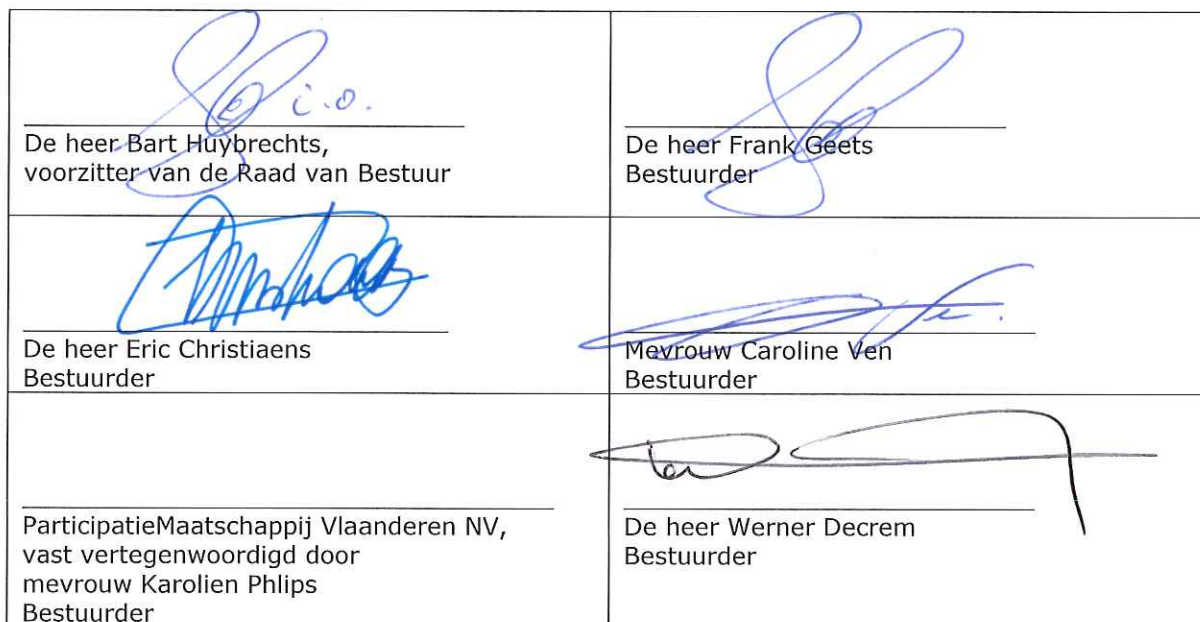 i.o.
De heer Bart Huybrechts,
voorzitter van de Raad van Bestuur
De heer Frank Geets
Bestuurder
De heer Eric Christiaens
Bestuurder
Mevrouw Caroline Ven
Bestuurder
ParticipatieMaatschappij Vlaanderen NV,
vast vertegenwoordigd door
mevrouw Karolien Phlips
Bestuurder
De heer Werner Decrem
Bestuurder